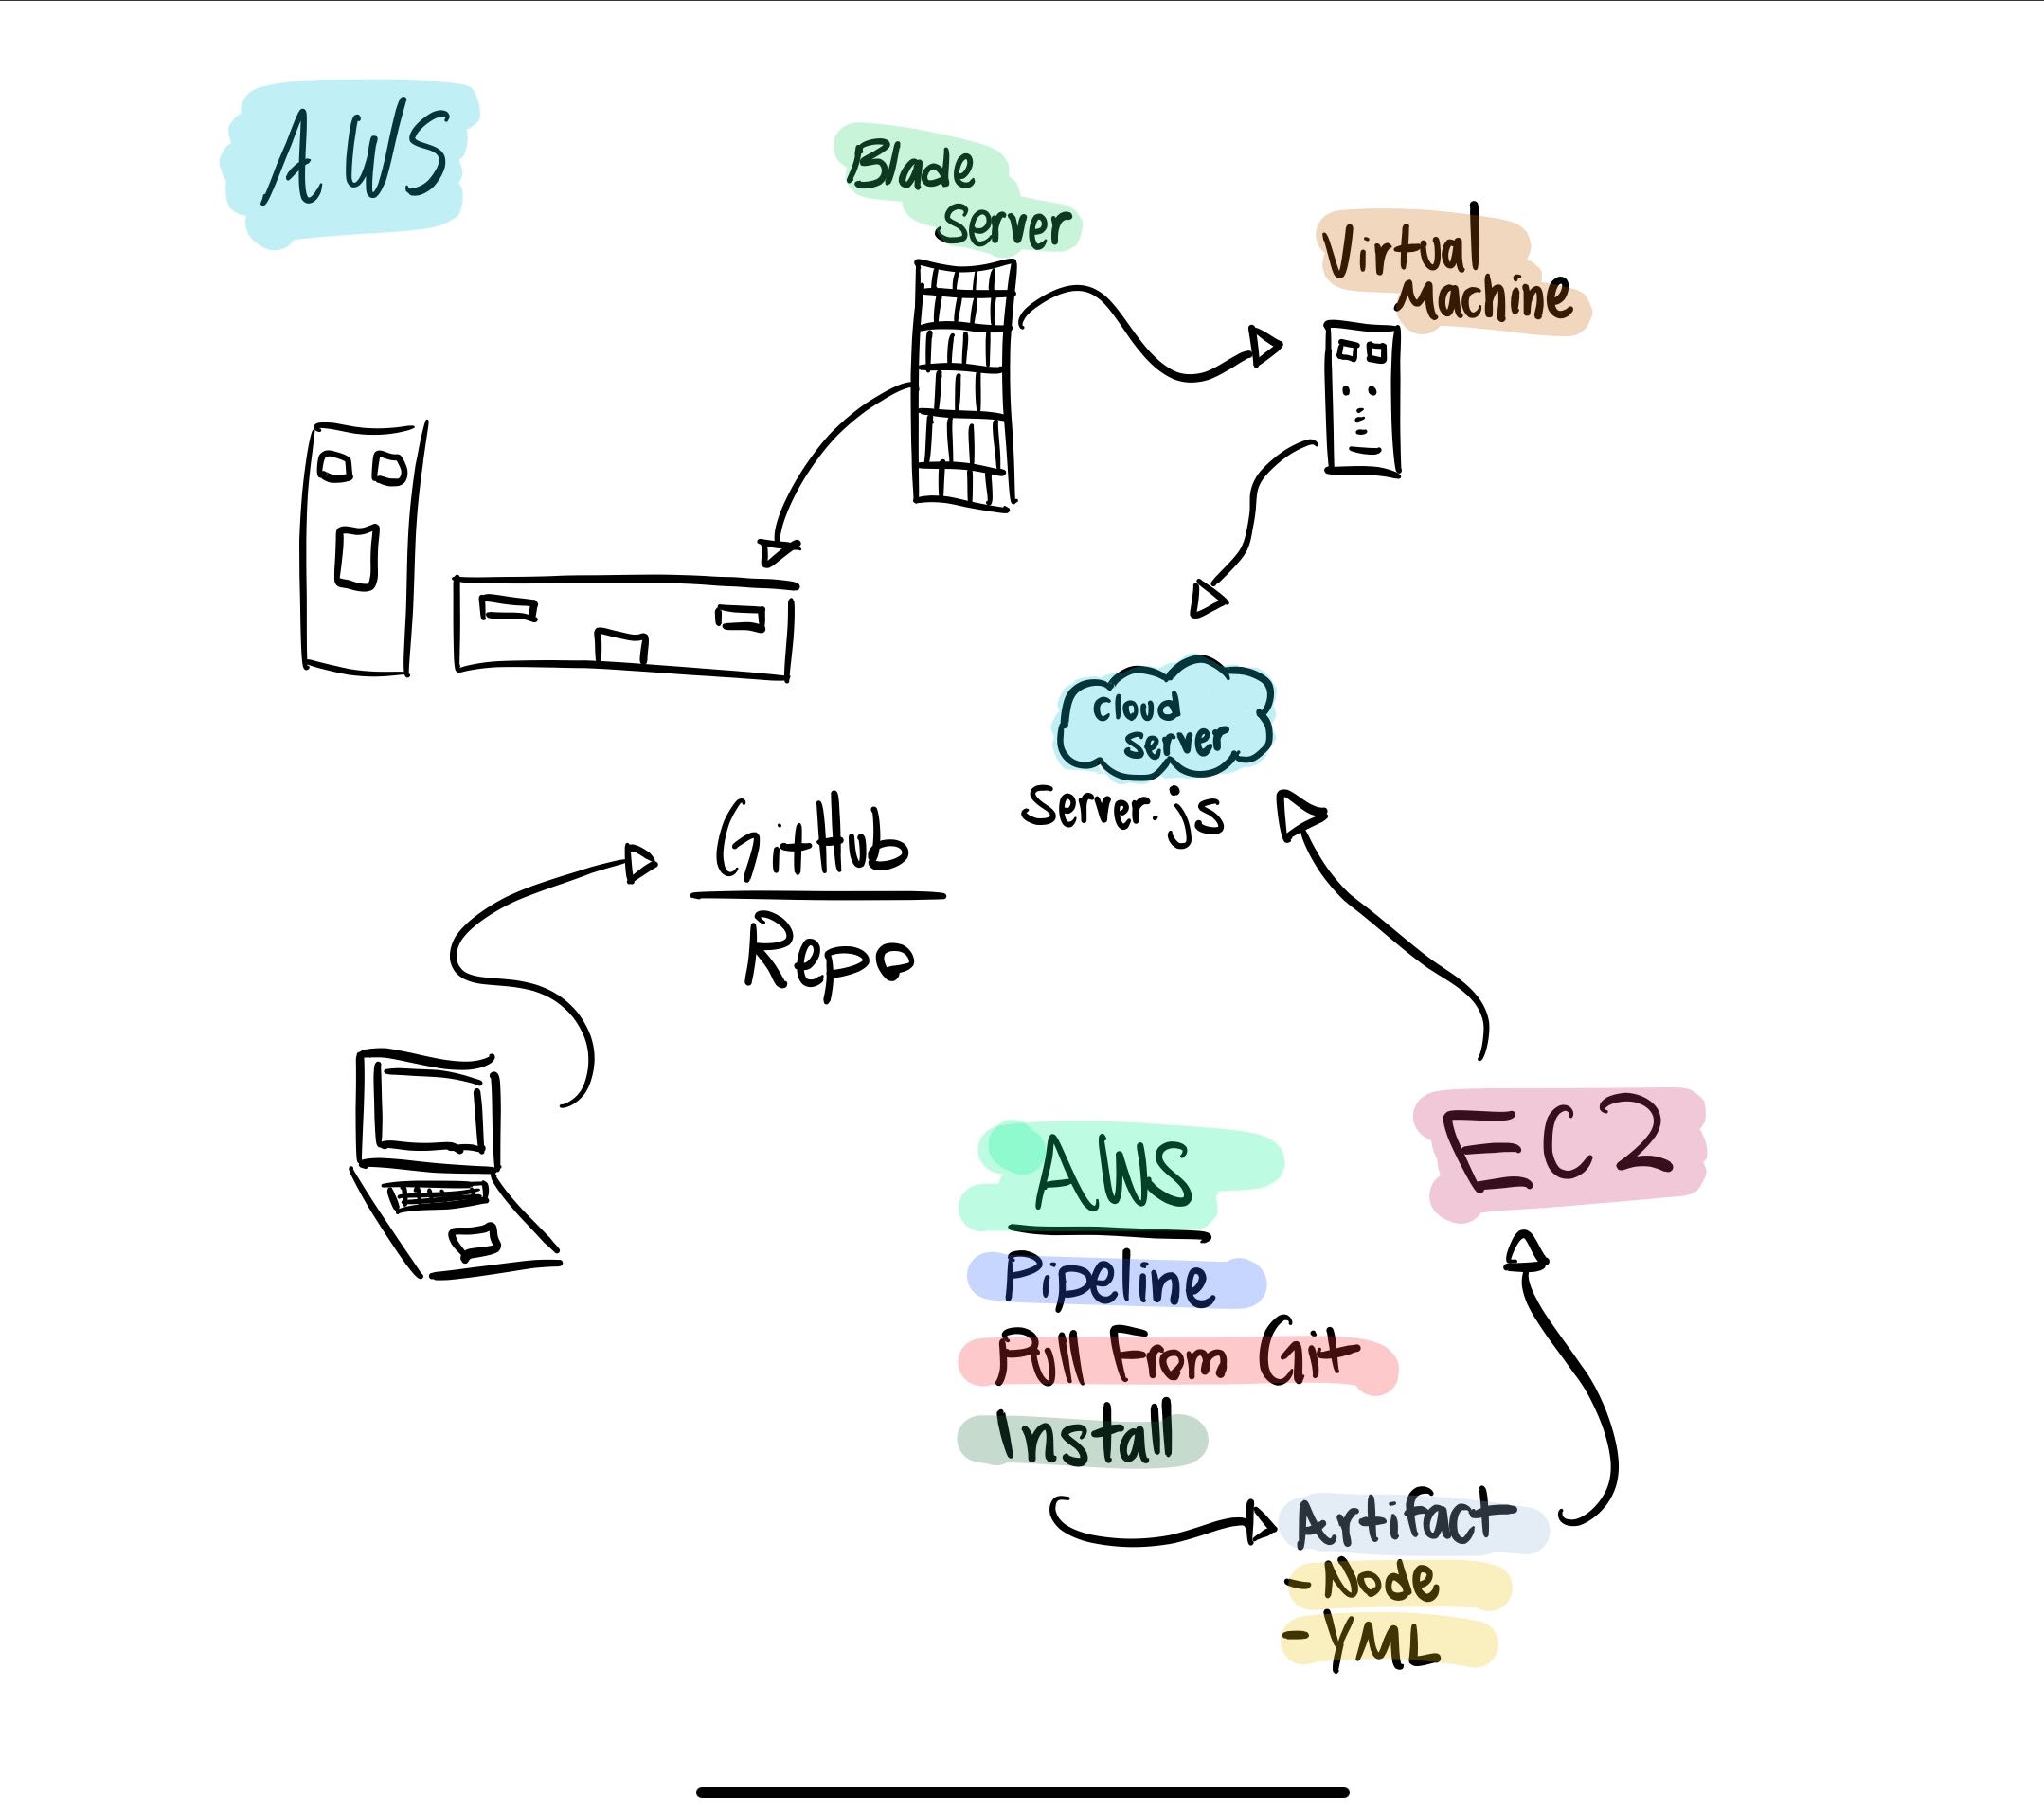 AWS
Blade
Server
Virtual
Machine
Cloud
Server
Server.js
GitHub
Repo
EC2
AWS
Pipeline
Pull From Git
Install
Artifact
- Node
- YML